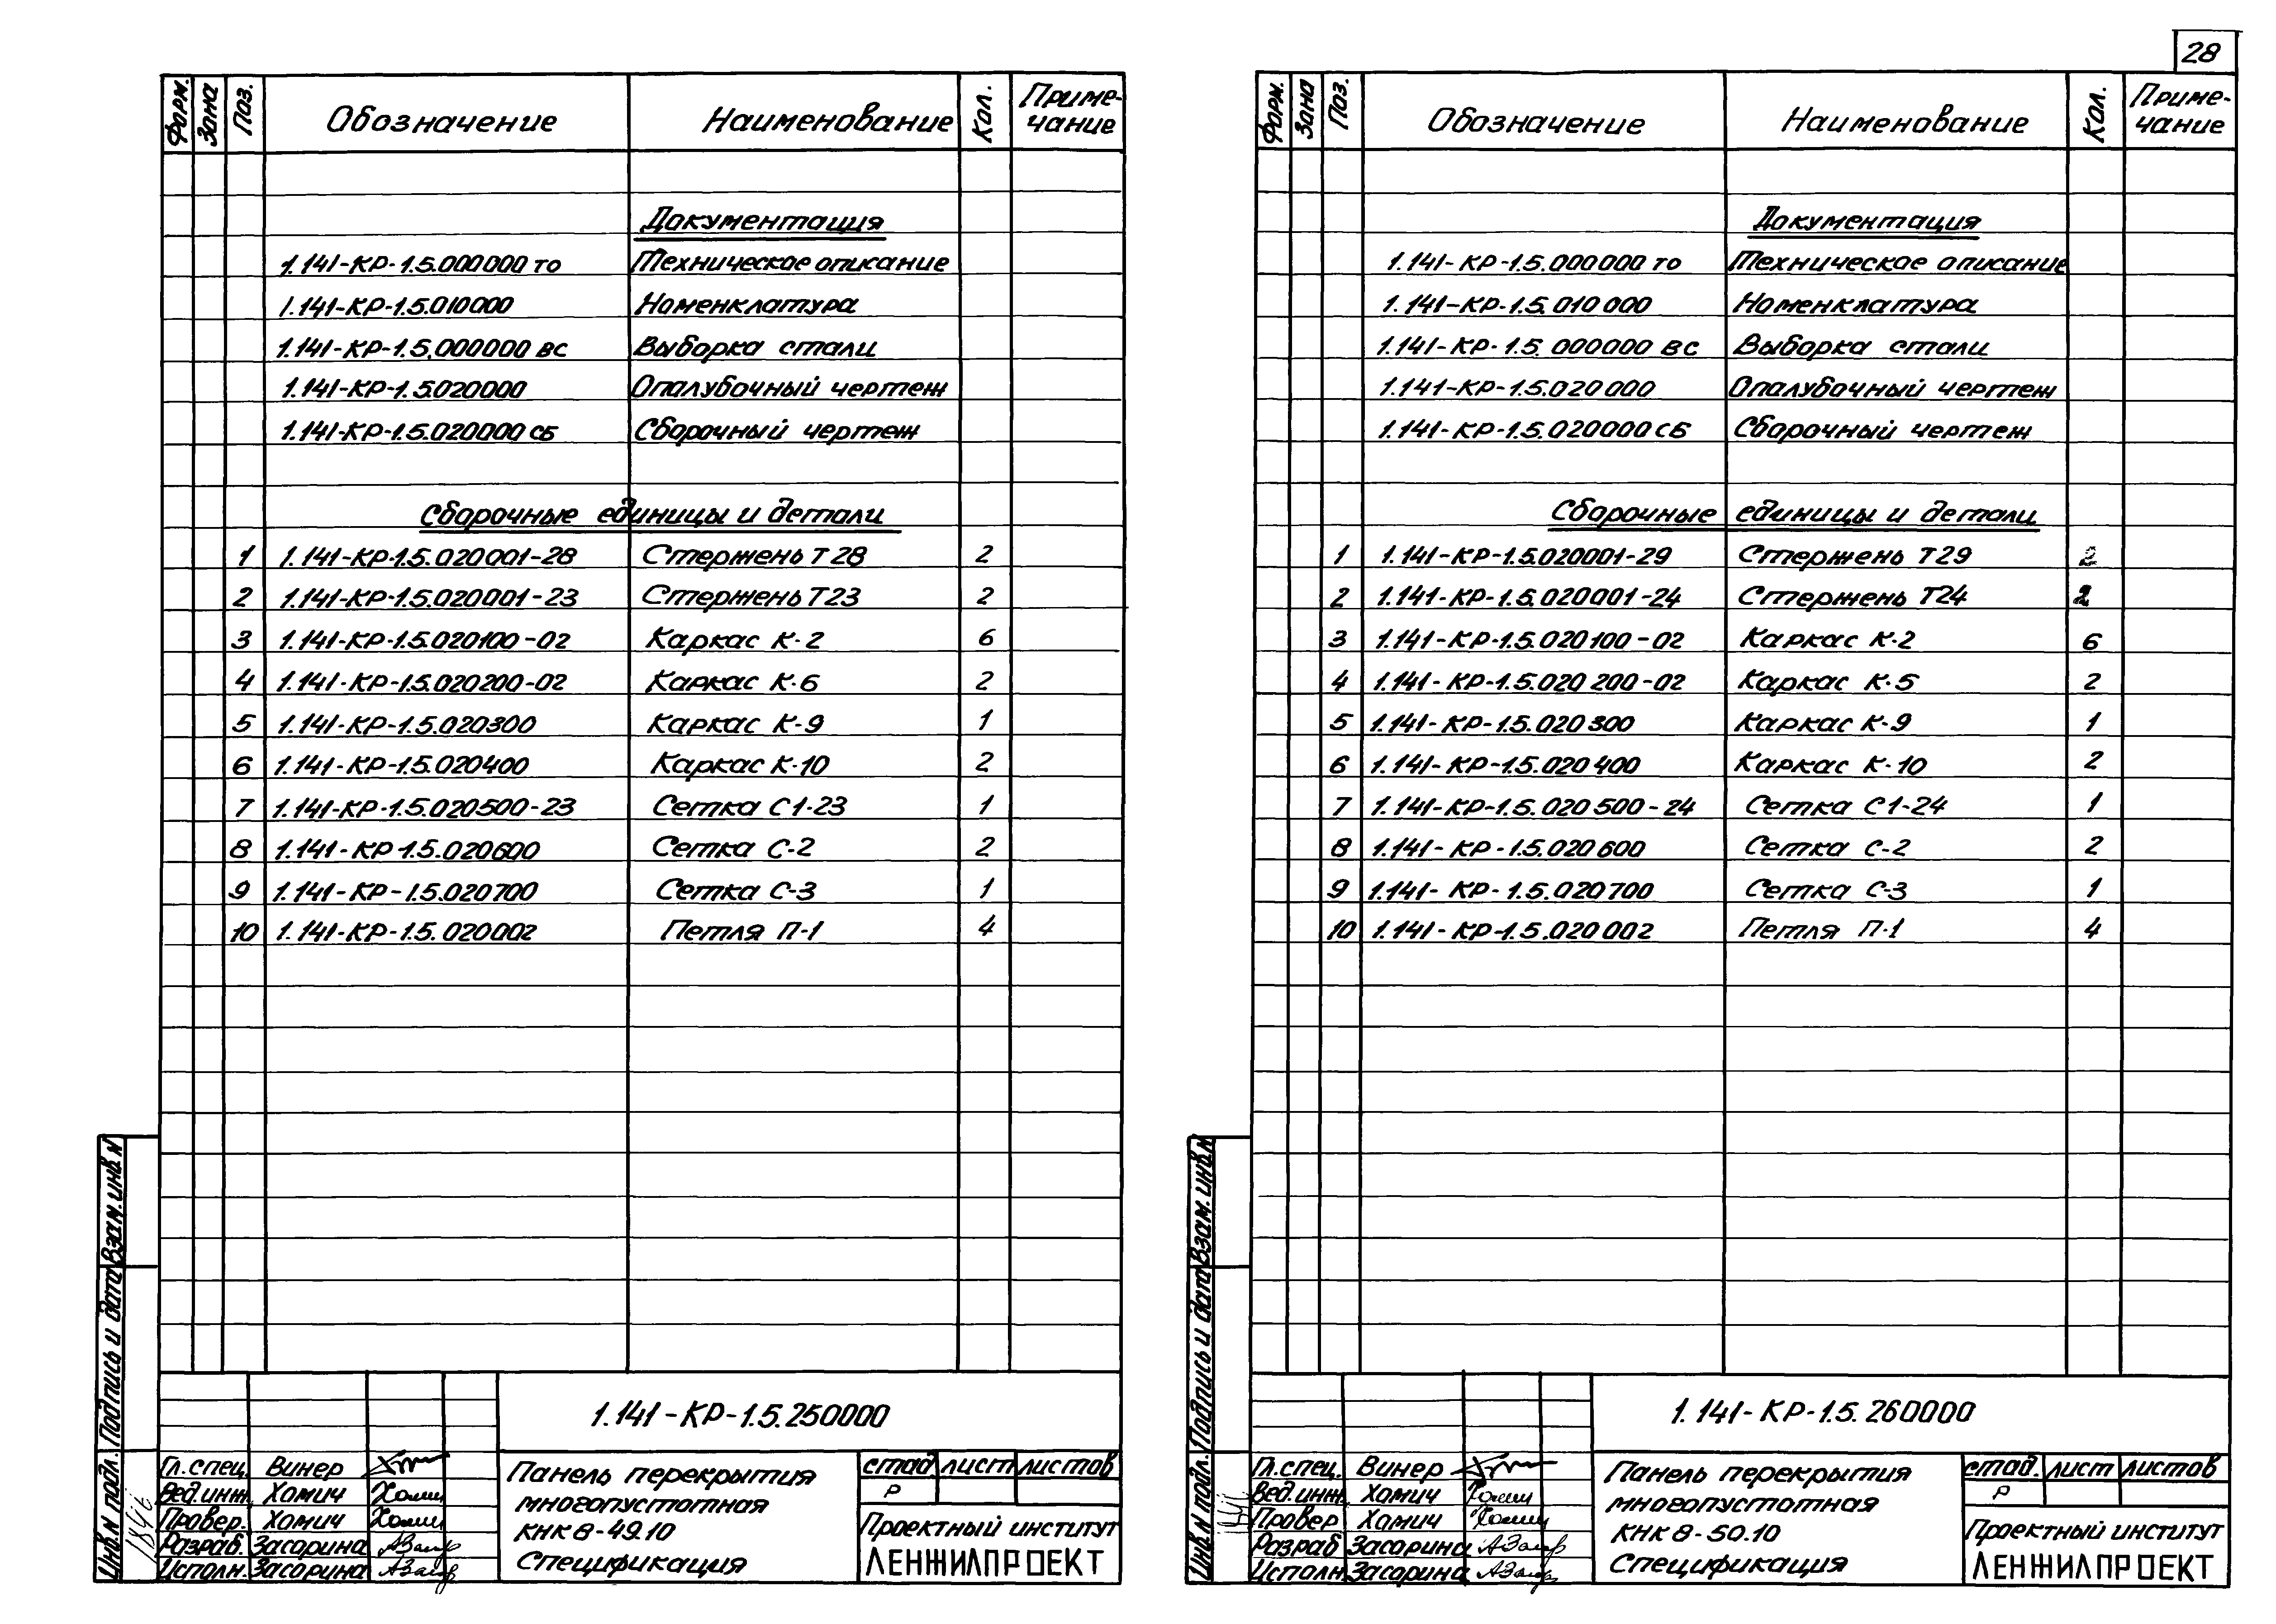 28
Форм. Зона Поз. Обозначение Наименование Кол. Приме-чание
Документация
1.141-КР-1.5.000000 ТО Техническое описание
1.141-КР-1.5.010000 Номенклатура
1.141-КР-1.5.000000 ВС Выборка стали
1.141-КР-1.5.020000 Опалубочный чертеж
1.141-КР-1.5.020000 СБ Сборочный чертеж
Сборочные единицы и детали
1 1.141-КР-1.5.020001-28 Стержень Т28 2
2 1.141-КР-1.5.020001-23 Стержень Т23 2
3 1.141-КР-1.5.020100-02 Каркас К-2 6
4 1.141-КР-1.5.020200-02 Каркас К-6 2
5 1.141-КР-1.5.020300 Каркас К-9 1
6 1.141-КР-1.5.020400 Каркас К-10 2
7 1.141-КР-1.5.020500-23 Сетка С1-23 1
8 1.141-КР 1.5.020600 Сетка С-2 2
9 1.141-КР-1.5.020700 Сетка С-3 1
10 1.141-КР-1.5.020002 Петля П-1 4
Инв.N подл. Подпись и дата Взам.инв.N
1.141-КР-1.5.250000
Гл.спец. Винер
Вед.инж. Хомич
Провер. Хомич
Разраб. Засорина
Исполн. Засорина
Панель перекрытия
многопустотная
КНК 8-49.10
Спецификация
стад. лист листов
Р
Проектный институт
ЛЕНЖИЛПРОЕКТ
Форм. Зона Поз. Обозначение Наименование Кол. Приме-чание
Документация
1.141-КР-1.5.000000 ТО Техническое описание
1.141-КР-1.5.010000 Номенклатура
1.141-КР-1.5.000000 ВС Выборка стали
1.141-КР-1.5.020000 Опалубочный чертеж
1.141-КР-1.5.020000 СБ Сборочный чертеж
Сборочные единицы и детали
1 1.141-КР-1.5.020001-29 Стержень Т29 2
2 1.141-КР-1.5.020001-24 Стержень Т24 2
3 1.141-КР-1.5.020100-02 Каркас К-2 6
4 1.141-КР-1.5.020200-02 Каркас К-5 2
5 1.141-КР-1.5.020300 Каркас К-9 1
6 1.141-КР-1.5.020400 Каркас К-10 2
7 1.141-КР-1.5.020500-24 Сетка С1-24 1
8 1.141-КР-1.5.020600 Сетка С-2 2
9 1.141-КР-1.5.020700 Сетка С-3 1
10 1.141-КР-1.5.020002 Петля П-1 4
Инв.N подл. Подпись и дата Взам.инв.N
1.141-КР-1.5.260000
Гл.спец. Винер
Вед.инж. Хомич
Провер Хомич
Разраб Засорина
Исполн. Засорина
Панель перекрытия
многопустотная
КНК 8-50.10
Спецификация
стад. лист листов
Р
Проектный институт
ЛЕНЖИЛПРОЕКТ